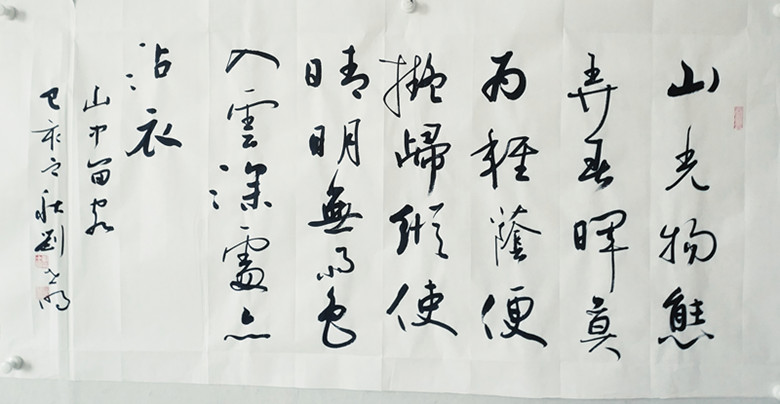 山光物態
弄春暉莫
为輕蔭便
擬歸縱使
晴明無雨色
入雲深處亦
沾衣
山中留客
己亥之秋劉明